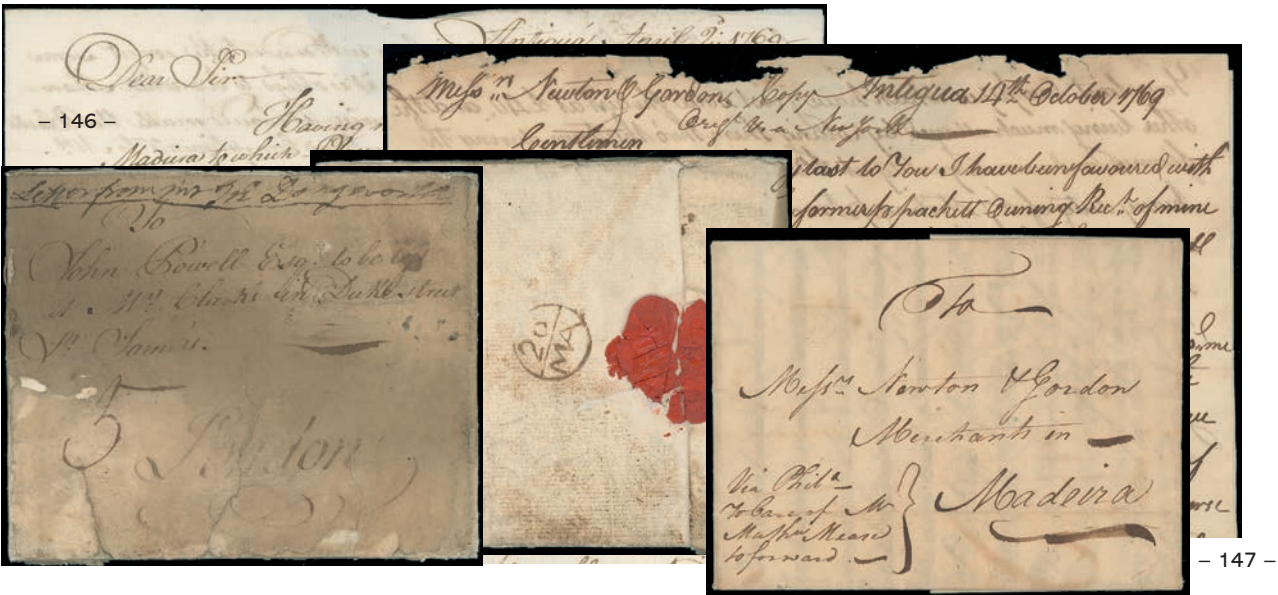 Antigua April 2d. 1769
Dear Sir
– 146 –
Having
Madeira to which
Messrs. Newton & Gordon Copy Antigua 14th October 1769
Origl. via New York
Gentlemen
last to You I have been favoured with
former p packett Owning Rect. of mine
Letter from mr Jn
To
John Powell Esqr. to be left
at Mr. Clarks in Duke street
St. James.
5
London
20
MA
To
Messrs. Newton & Gordon
Merchants in
Madeira
Via Phila.
To Care of Mr
Mathw. Mease
to forward
– 147 –